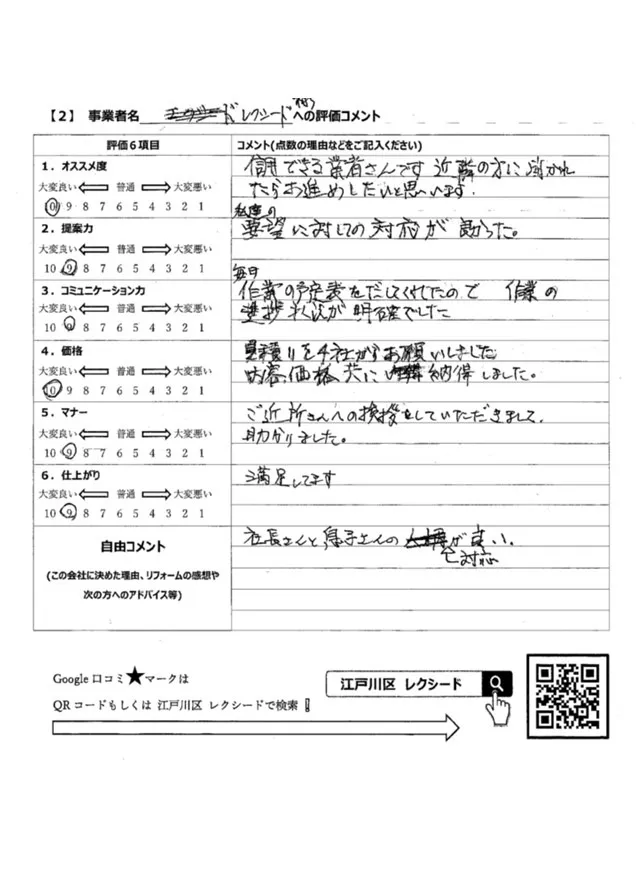 【2】 事業者名 レクシード 様 への評価コメント
評価6項目
コメント(点数の理由などをご記入ください)
1．オススメ度
大変良い 普通 大変悪い
10 9 8 7 6 5 4 3 2 1
信用できる業者さんです 近隣の方に 聞かれ
たらお進めしたいと思います.
2．提案力
大変良い 普通 大変悪い
10 9 8 7 6 5 4 3 2 1
私達の
要望に対しての対応が 良った。
3．コミュニケーション力
大変良い 普通 大変悪い
10 9 8 7 6 5 4 3 2 1
毎日
作業の予定表をだしてくれたので 作業の
進捗状況が明確でした
4．価格
大変良い 普通 大変悪い
10 9 8 7 6 5 4 3 2 1
見積りを4社からお願いしました
内容、価格共に 納得しました。
5．マナー
大変良い 普通 大変悪い
10 9 8 7 6 5 4 3 2 1
ご近所さんへの挨拶をしていただきまして、
助かりました。
6．仕上がり
大変良い 普通 大変悪い
10 9 8 7 6 5 4 3 2 1
満足してます
自由コメント
(この会社に決めた理由、リフォームの感想や
次の方へのアドバイス等)
社長さんと息子さんの 対応が良い.
Google 口コミ★マークは
QRコードもしくは 江戸川区 レクシードで検索！
江戸川区 レクシード